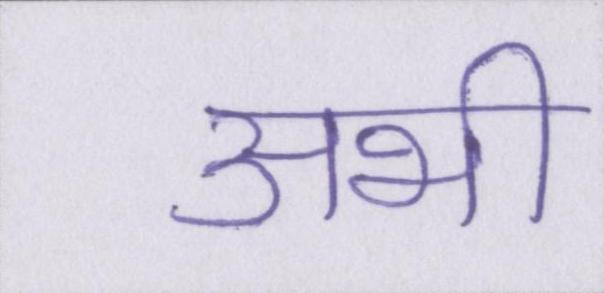 अभी